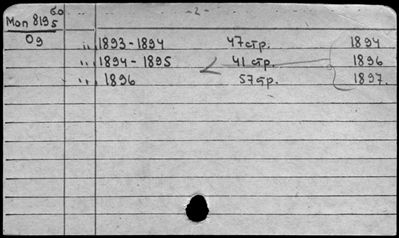 60
- 2 -
Моп 8195
Од
" " 1893-1894 47 стр. 1894
" " 1894-1895 41 стр. 1896
" " 1896 57 стр. 1897.